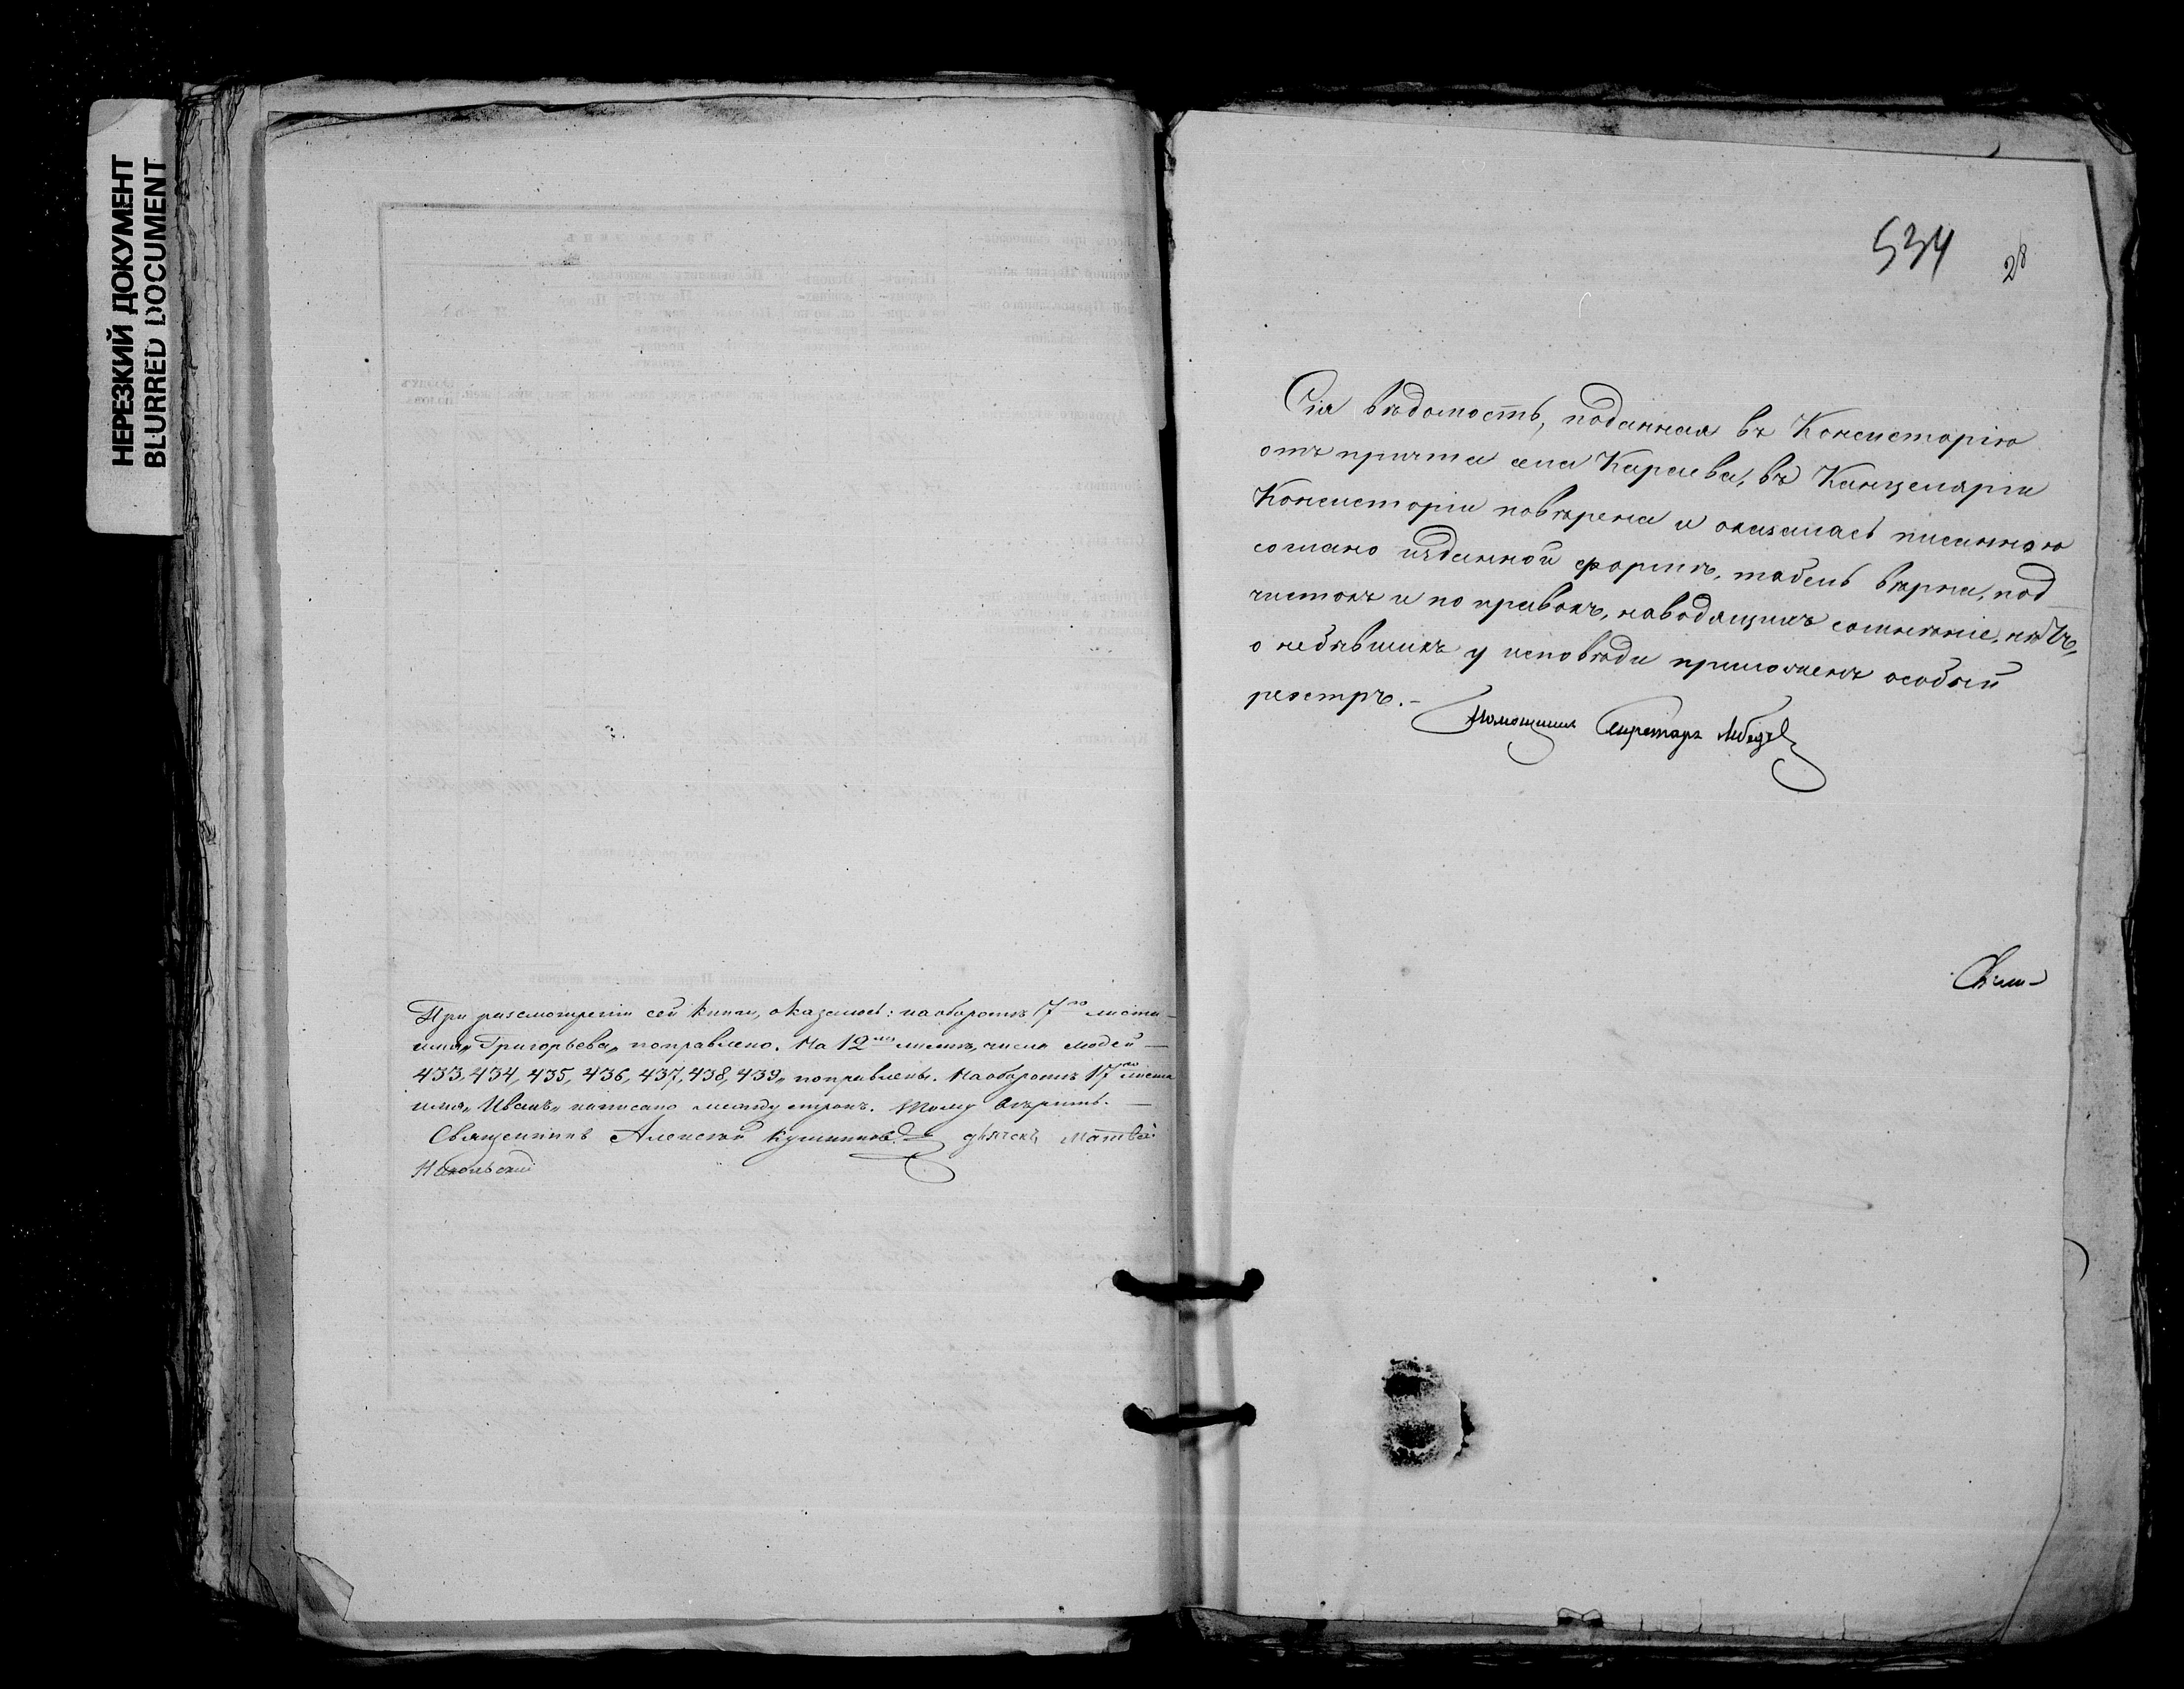 НЕРЕЗКИЙ ДОКУМЕНТ
BLURRED DOCUMENT
При разсмотреніи сей книги, оказалось: на оборотѣ 7го листа
имя „Григорьева„ поправлено. На 12мъ листѣ, числа людей
433, 434, 435, 436, 437, 438, 439„ поправлены. На оборотѣ 17го листа
имя „Иванъ„ написано между строкъ. Тому вѣрить.
Священникъ Алексѣй дьячекъ Матвей
Никольскій
534
28
Сія вѣдомость, поданная въ Консисторію
отъ причта села Караева, въ Канцеляріи
Консисторіи повѣрена и оказалась писанною
согласно изданной формѣ, табель вѣрна, под-
чистокъ и поправокъ, наводящихъ сомнѣніе, нѣтъ,
о небывшихъ у исповѣди приложенъ особый
реэстръ.-
Помощникъ Секретаря